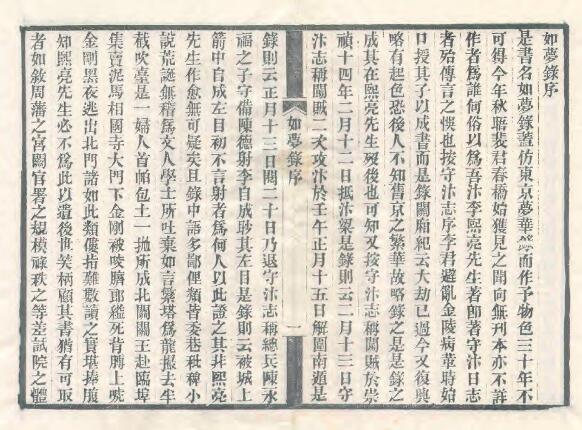 如夢錄序
是書名如夢錄蓋仿東京夢華錄而作予物色三十年不
可得今年秋晤裴君春橋始獲見之聞向無刊本亦不詳
作者爲誰何俗以爲吾汴李熙亮先生著卽著守汴日志
者殆傳言之悞也按守汴志序李君避亂金陵病革時始
口授其子以成書而是錄關廂紀云大劫已過今又復興
略有起色恐後人不知舊京之繁華故略錄之是是錄之
成其在熙亮先生歿後也可知又按守汴志稱闖賊於崇
禎十四年二月十二日抵汴梁是錄則云二月十三日守
汴志稱闖賊二次攻汴於壬午正月十五日解圍南遁是
如夢錄序
一
錄則云正月十三日閱二十日乃退守汴志稱總兵陳永
福之子守備陳德射李自成眇其左目是錄則云被城上
箭中自成左目初不言射者爲何人以此證之其非熙亮
先生作愈無可疑矣且錄中語多鄙俚類皆委巷秕稗小
說荒誕無稽爲文人學士所吐棄如言繁塔爲龍撮去半
截吹臺是一婦人首帕包土一拋所成北關關王赴臨埠
集賣泥馬相國寺大門下金剛被咬臍郞縊死背膊上唬
金剛黑夜逃出北門諸如此類僂指難數讀之實堪捧腹
知熙亮先生必不爲此以遺後世笑柄顧其書猶有可取
者如敘周藩之宮闕官署之規模祿秩之等差試院之體